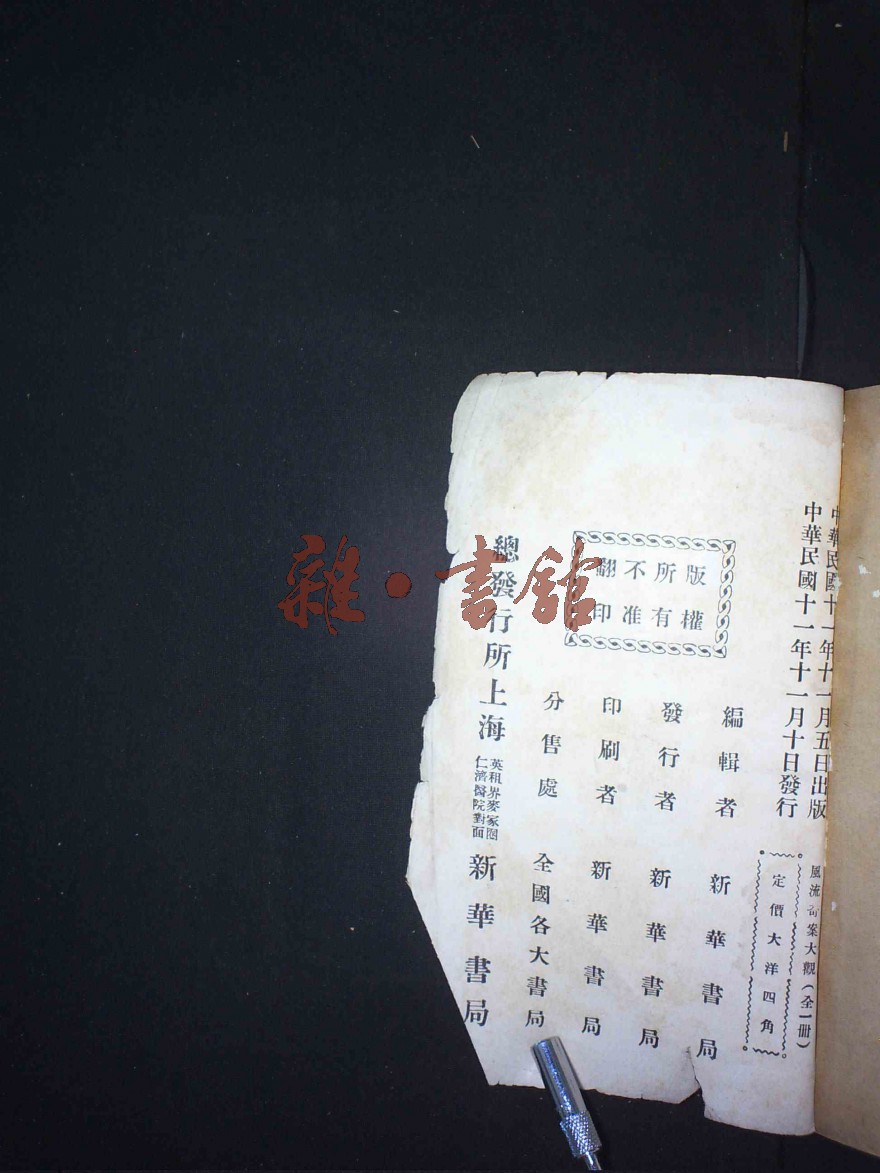 中華民國十一年十一月五日出版
中華民國十一年十一月十日發行
風流奇案大觀（全一冊）
定價大洋四角
版權
所有
不准
翻印
編輯者 新華書局
發行者 新華書局
印刷者 新華書局
分售處 全國各大書局
總發行所上海 英租界麥家圈 仁濟醫院對面 新華書局
雜·書館